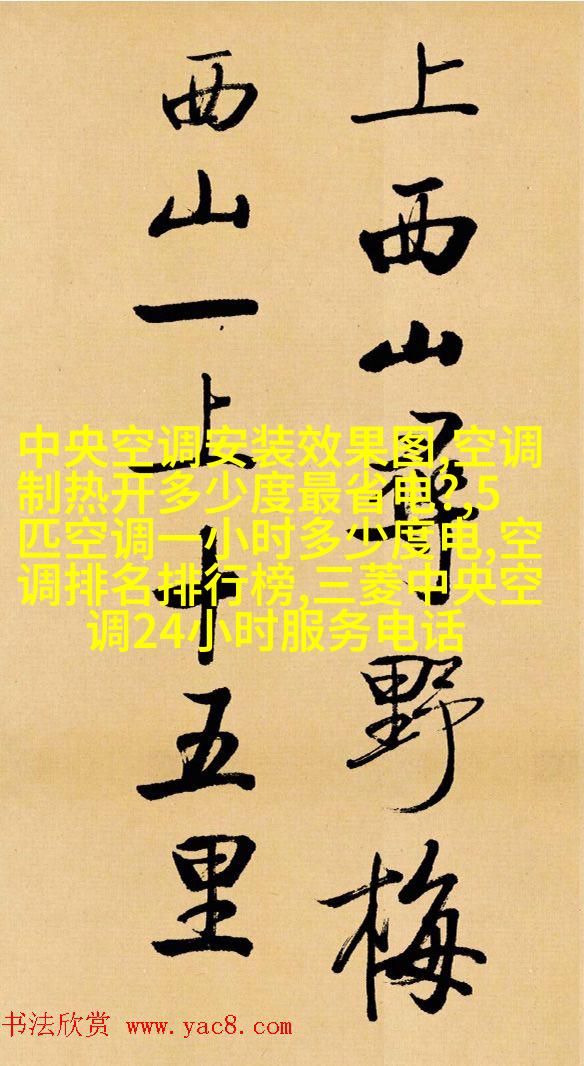 上西山尋野梅
西山一上十五里
中央空调安装效果图,空调
制热开多少度最省电?,5
匹空调一小时多少度电,空
调排名排行榜,三菱中央空
调24小时服务电话
书法欣赏 www.yac8.com